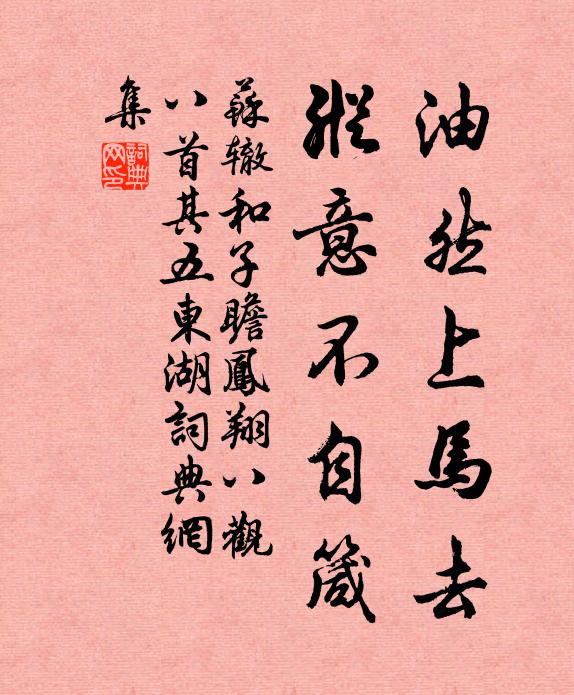 油然上馬去
縱意不自箴
蘇辙和子瞻鳳翔八觀
八首其五東湖詞典網
集
詞典網印